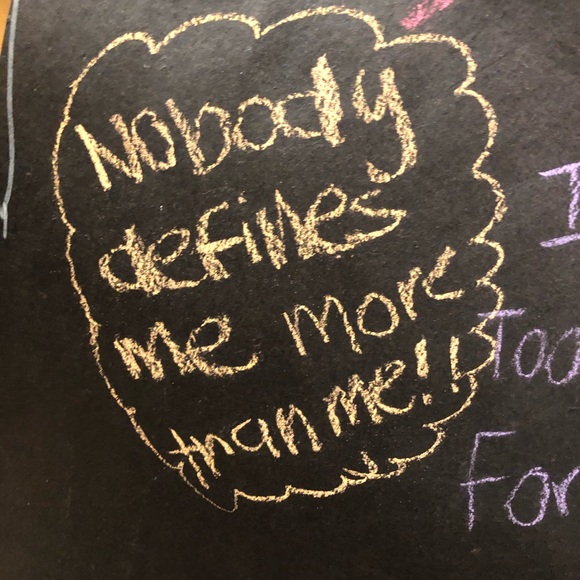 Nobody
defines
me more
than me!!
I
Too
For